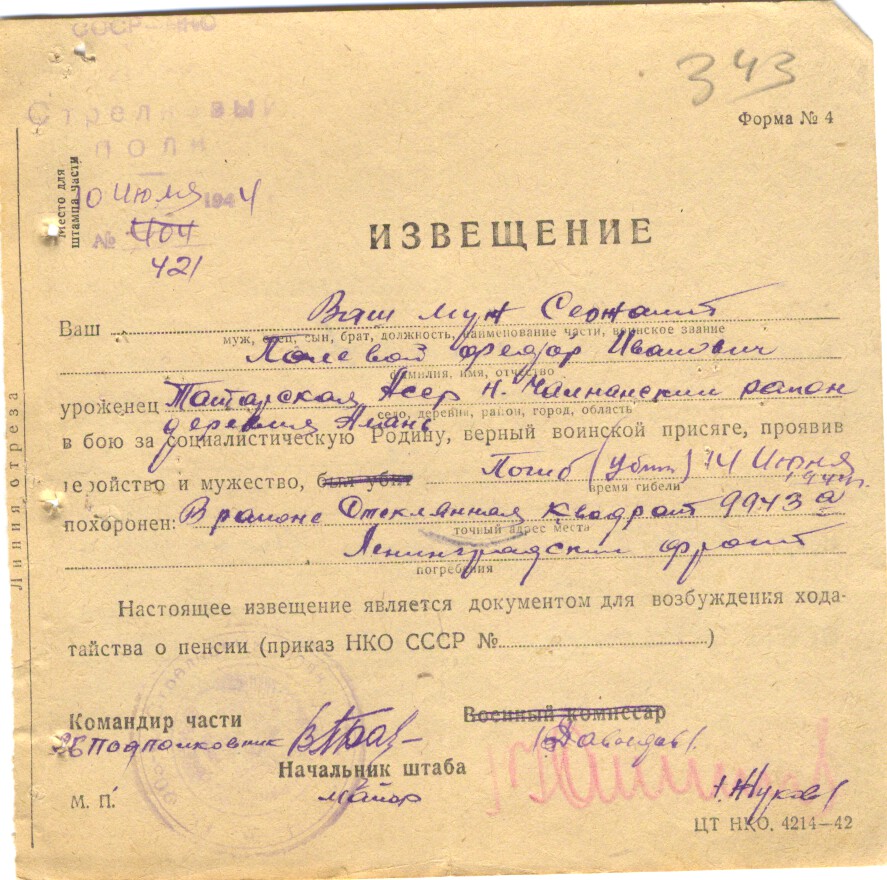 СССР—НКО
Стрелковый
полк
Место для
штампа части
10 Июля 1944
№ 404
421
343
Форма № 4
ИЗВЕЩЕНИЕ
Ваш Ваш муж Сержант
муж, отец, сын, брат, должность, наименование части, воинское звание
Полевой Федор Иванович
фамилия, имя, отчество
уроженец Татарская Асср Н. Челнинский район
село, деревня, район, город, область
деревня
в бою за социалистическую Родину, верный воинской присяге, проявив
геройство и мужество, был убит Погиб (убит) 14 Июня
1944г.
время гибели
похоронен: В районе Стеклянная квадрат 9943 а
точный адрес места
Ленинградский фронт
погребения
Линия отреза
Настоящее извещение является документом для возбуждения хода-
тайства о пенсии (приказ НКО СССР № )
Командир части Военный комиссар
Подполковник (Давыдов).
Начальник штаба
М. П. майор (Жуков)
ЦТ НКО. 4214—42